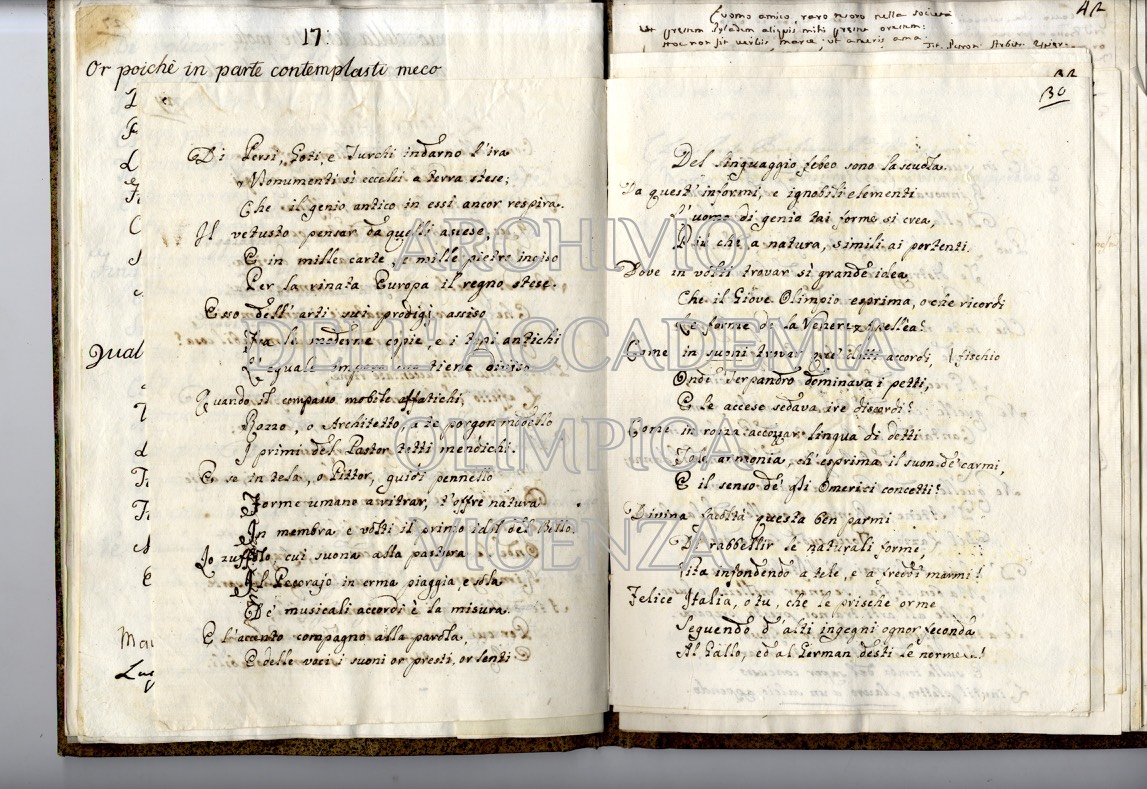 17.
Or poichè in parte contemplasti meco
Qual
Di Persi, Goti, e Turchi indarno l'ira
Monumenti sì eccelsi a terra stese;
Che il genio antico in essi ancor respira.
Il vetusto pensar da quelli apprese,
E in mille carte, e mille pietre inciso
Per la rinata Europa il regno stese.
Esso dell'arti sui prodigj assiso
Fra le moderne copie, e i tipi antichi
L'eguale impero tiene diviso
Quando il compasso mobile affatichi,
Rozzo, o Architetto, a te porgon modello
I primi del Pastor tetti mendichi.
E se in tela, o Pittor, guidi pennello
Forme umane a ritrar, t'offre natura
In membra, e volti il primo idol del Bello.
Lo zuffolo, cui suona alla pastura
Il Pecorajo in erma piaggia, e sola
De' musicali accordi è la misura.
E l'accento compagno alla parola,
E delle voci i suoni or presti, or lenti
42
Tit. Petron. Arbiter
32
30
Del linguaggio febeo sono la scuola.
Da quest' informi, e ignobili elementi
L'uomo di genio tai forme si crea,
Più che a natura, simili ai portenti.
Dove in volti trovar sì grande idea
Che il Giove Olimpio esprima, o che ricordi
Le forme de la Venere Apellea?
Come in suoni trovar que' dotti accordi, fischio
Onde Terpandro dominava i petti,
E le accese sedava ire discordi?
Come in rozza accozzar lingua di detti
Tale armonia, ch'esprima il suon de' carmi,
E il senso de' gli Omerici concetti?
Divina facoltà questa ben parmi
Di rabbellir le naturali forme,
Vita infondendo a tele, e a freddi marmi!
Felice Italia, o tu, che le prische orme
Seguendo d'alti ingegni ognor feconda
Al Gallo, ed al German desti le norme!
ARCHIVIO
DELL'ACCADEMIA
OLIMPICA
VICENZA